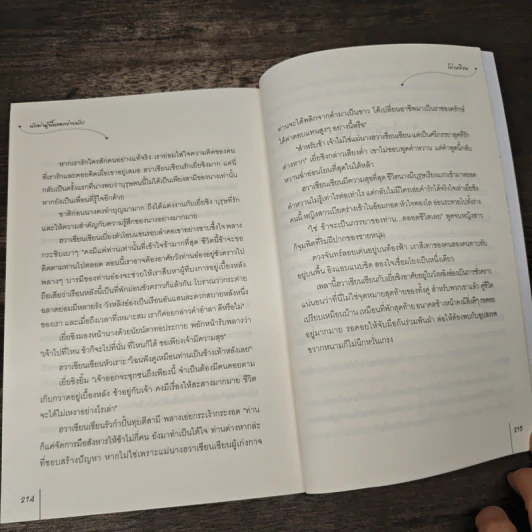 หากเรารักใครสักคนอย่างแท้จริง เราย่อมใส่ใจความคิดของคน
ที่เรารักและคอยคิดเผื่อเขาอยู่เสมอ ฮวาเชียนเชียนรักเยี่ยซิงมาก แต่นี่
กลับเป็นครั้งแรกที่นางพบว่าบุรุษคนนี้ไม่ได้เป็นเพียงสามีของนางเท่านั้น
หากยังเป็นเพื่อนที่รู้ใจอีกด้วย
ชาตินี้นางคงทำบุญมามาก ถึงได้แต่งงานกับเยี่ยซิง บุรุษที่รัก
และให้ความสำคัญกับความรู้สึกของนางอย่างมากมาย
ฮวาเชียนเชียนเบี่ยงตัวโอบแขนรอบลำคอเขาอย่างซาบซึ้งใจ พลาง
กระซิบเบาๆ "คงมีแต่ท่านเท่านั้นที่เข้าใจข้ามากที่สุด ชีวิตนี้ข้าจะขอ
ติดตามท่านไปตลอด ตอนนี้เราอาจต้องอาศัยวังท่านอ๋องอยู่ชั่วคราวไป
พลางๆ บารมีของท่านอ๋องจะช่วยให้เราสืบหาผู้ที่บงการอยู่เบื้องหลัง
ถือเสียว่าเรือนหลังนี้เป็นที่พักผ่อนชั่วคราวก็แล้วกัน โบราณว่ากระต่าย
ฉลาดย่อมมีหลายรัง วังหลังย่อมเป็นเรือนอันแสนสะดวกสบายหลังหนึ่ง
ของเรา และเมื่อถึงเวลาที่เหมาะสม เราก็ค่อยกล่าวคำอำลา ดีหรือไม่"
เยี่ยซิงมองหน้านางด้วยนัยน์ตาทอประกาย พยักหน้ารับพลางว่า
"เจ้าไปที่ไหน ข้าก็จะไปที่นั่น ที่ไหนก็ได้ ขอเพียงเจ้ามีความสุข"
ฮวาเชียนเชียนหัวเราะ "ไฉนฟังดูเหมือนท่านเป็นช้างเท้าหลังเลย"
เยี่ยซิงยิ้ม "เจ้าออกจะซุกซนถึงเพียงนี้ จำเป็นต้องมีคนคอยตาม
เก็บกวาดอยู่เบื้องหลัง ข้าอยู่กับเจ้า คงมีเรื่องให้สะสางมากมาย ชีวิต
จะได้ไม่เหงาอย่างไรเล่า"
ฮวาเชียนเชียนรัวกำปั้นทุบตีสามี พลางเอ่ยกระเง้ากระงอด "ท่าน
ก็แค่จัดการมือสังหารให้ข้าไม่กี่คน ยังมาทำเป็นได้ใจ ท่านต่างหากล่ะ
ที่ชอบสร้างปัญหา หากไม่ใช่เพราะแม่นางฮวาเชียนเชียนผู้เก่งกาจ
214
ท่านจะได้พลิกจากดำมาเป็นขาว ได้เปลี่ยนอาชีพมาเป็นราชองครักษ์
ได้ค่าตอบแทนสูงๆ อย่างนี้หรือ"
"สำหรับข้า เจ้าไม่ใช่แม่นางฮวาเชียนเชียน แต่เป็นศรีภรรยาสุดที่รัก
ต่างหาก" เยี่ยซิงกล่าวเสียงต่ำ เขาไม่ชอบพูดคำหวาน แต่คำพูดนี้กลับ
หวานฉ่ำก่อนไหนที่สุดในใต้หล้า
ฮวาเชียนเชียนมีความสุขที่สุด ชีวิตนางมีบุรุษเรียงแถวเข้ามาหยอด
คำหวานไม่รู้เท่าไรต่อเท่าไร แต่กลับไม่มีใครเอ่ยคำรักได้จริงใจเท่าเยี่ยซิง
คนนี้ หญิงสาวเบียดร่างเข้าในอ้อมกอด หัวใจพองโต
"ใช่ ข้าจะเป็นภรรยาของท่าน...ตลอดชีวิตเลย" พูดจบหญิงสาว
ก็จุมพิตที่ริมฝีปากของชายหนุ่ม
ดวงจันทร์ลอยเด่นอยู่บนท้องฟ้า เงาสีเทาของคนสองคนทาบทับ
อยู่บนพื้น อิงแอบแนบชิด สองใจเชื่อมโยงเป็นหนึ่งเดียว
แน่นอนว่าที่นี่ไม่ใช่จุดหมายสุดท้ายของทั้งคู่ สำหรับพวกเขาแล้ว
215